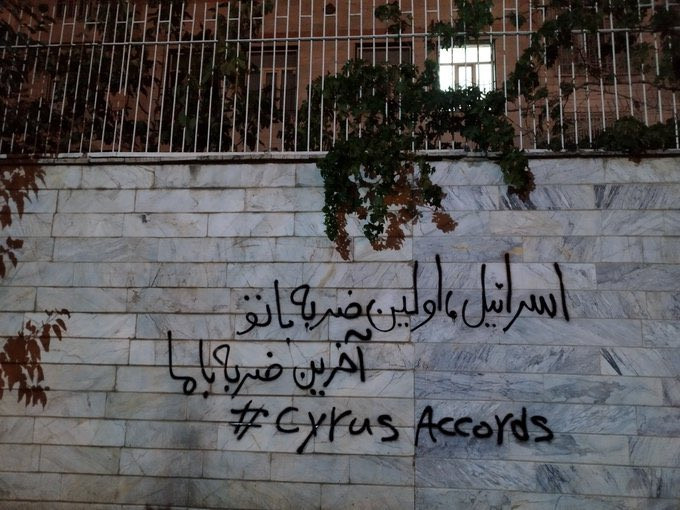 اسرائیل، اولین ضربه با تو
آخرین ضربه با ما
# Cyrus Accords